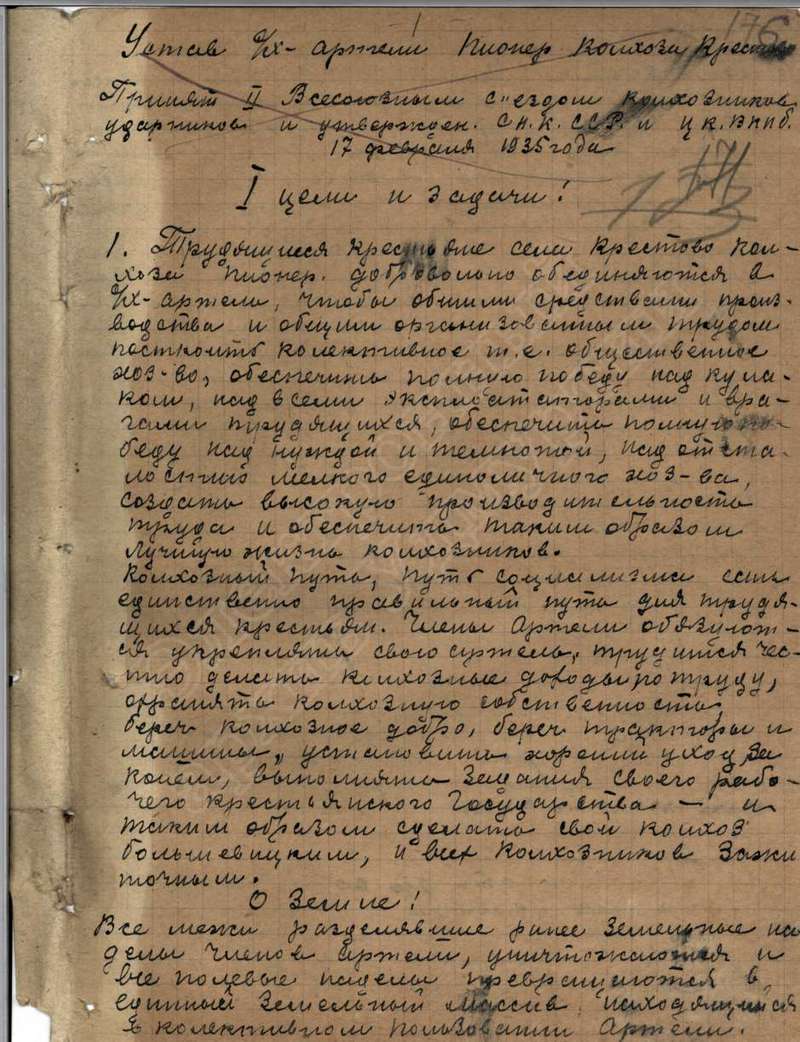 176
Устав с/х- артели Пионер колхоза Крестово
Принят II Всесоюзным с"ездом колхозников
ударников и утвержден. С.Н.К. ССР. и ц.к. ВКПб.
17 февраля 1935 года
I цели и задачи!
1. Трудящиеся крестьяне села Крестово кол-
хоза Пионер. добровольно обединяются в
с/х- артель, чтобы общими средствами произ-
водства и общим организованным трудом
построить колективное т.е. общественное
хоз-во, обеспечить полную победу над кула-
ком, над всеми эксплататорами и вра-
гами трудящихся, обеспечить полную по-
беду над нуждой и темнотой, над отста-
лостью мелкого единоличного хоз-ва,
создать высокую производительность
труда и обеспечить таким образом
лучшую жизнь колхозников.
Колхозный путь, путь социализма есть
единственно правильный путь для трудя-
щихся крестьян. Члены Артели обязуют-
ся укреплять свою артель, трудится чес-
тно делить колхозные доходы по труду,
охранять колхозную собственность,
береч колхозное добро, береч тракторы и
машины, установить хороший уход за
конем, выполнять задания своего рабо-
чего крестьянского Государства — и
таким образом сделать свой колхоз
большевицким, и всех колхозников зажи
точным.
О Земле!
Все межи разделявшие ранее Земельные на
делы членов артели, уничтожаются и
все полевые наделы превращаются в
единный Земельный массив. находящийся
в колективном пользовании Артели.